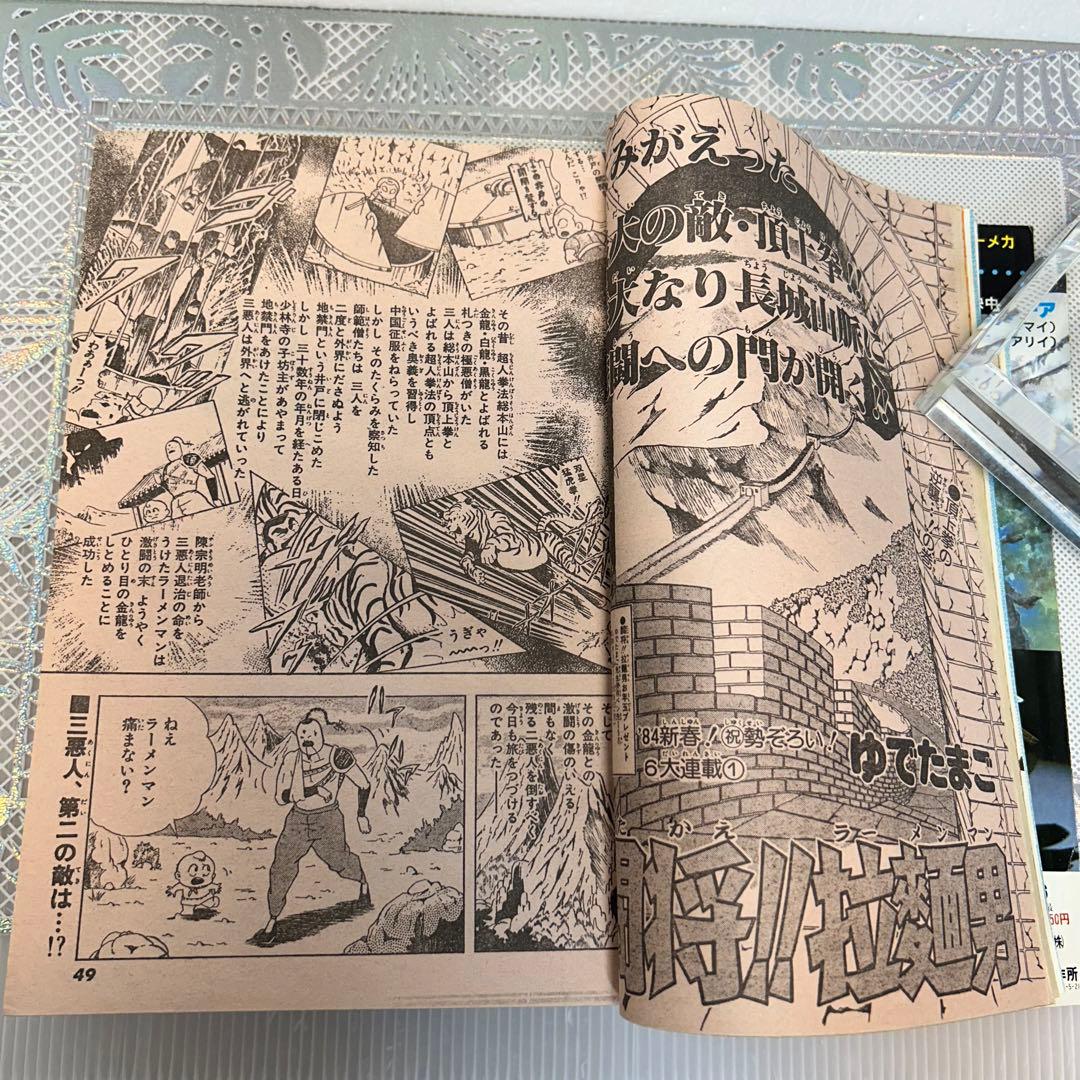 みがえった
大の敵・頂上拳
なり長城山脈に
闇への門が開
●頂上拳の
逆襲!!の巻
'84新春!㊗勢ぞろい!
6大連載①
ゆでたまご
たたかえ ラーメンマン
闘将!!拉麵男
その昔 超人拳法総本山には
金龍・白龍・黒龍とよばれる
札つきの極悪僧がいた
三人は総本山から頂上拳と
よばれる超人拳法の頂点とも
いうべき奥義を習得し
中国征服をねらっていた
しかし そのたくらみを察知した
師範僧たちは 三人を
二度と外界にださぬよう
地禁門という井戸に閉じこめた
しかし 三十数年の月を経たある日
少林寺の子坊主があやまって
地禁門をあけたことにより
三悪人は外界へと逃がれていった
わあぁっ
双星
猛虎拳!!
うぎゃ
~~っ!!
陳宗明老師から
三悪人退治の命を
うけたラーメンマンは
激闘の末 ようやく
ひとり目の金龍を
しとめることに
成功した
そして
その金龍との
激闘の傷のいえる
間もなく
残る二悪人を倒すべく
今日も旅をつづける
のであった──
ねえ
ラーメンマン
痛まない?
三悪人、第二の敵は…!?
49
ーメカ
マイ)
アリイ)
50円
㈱
作所